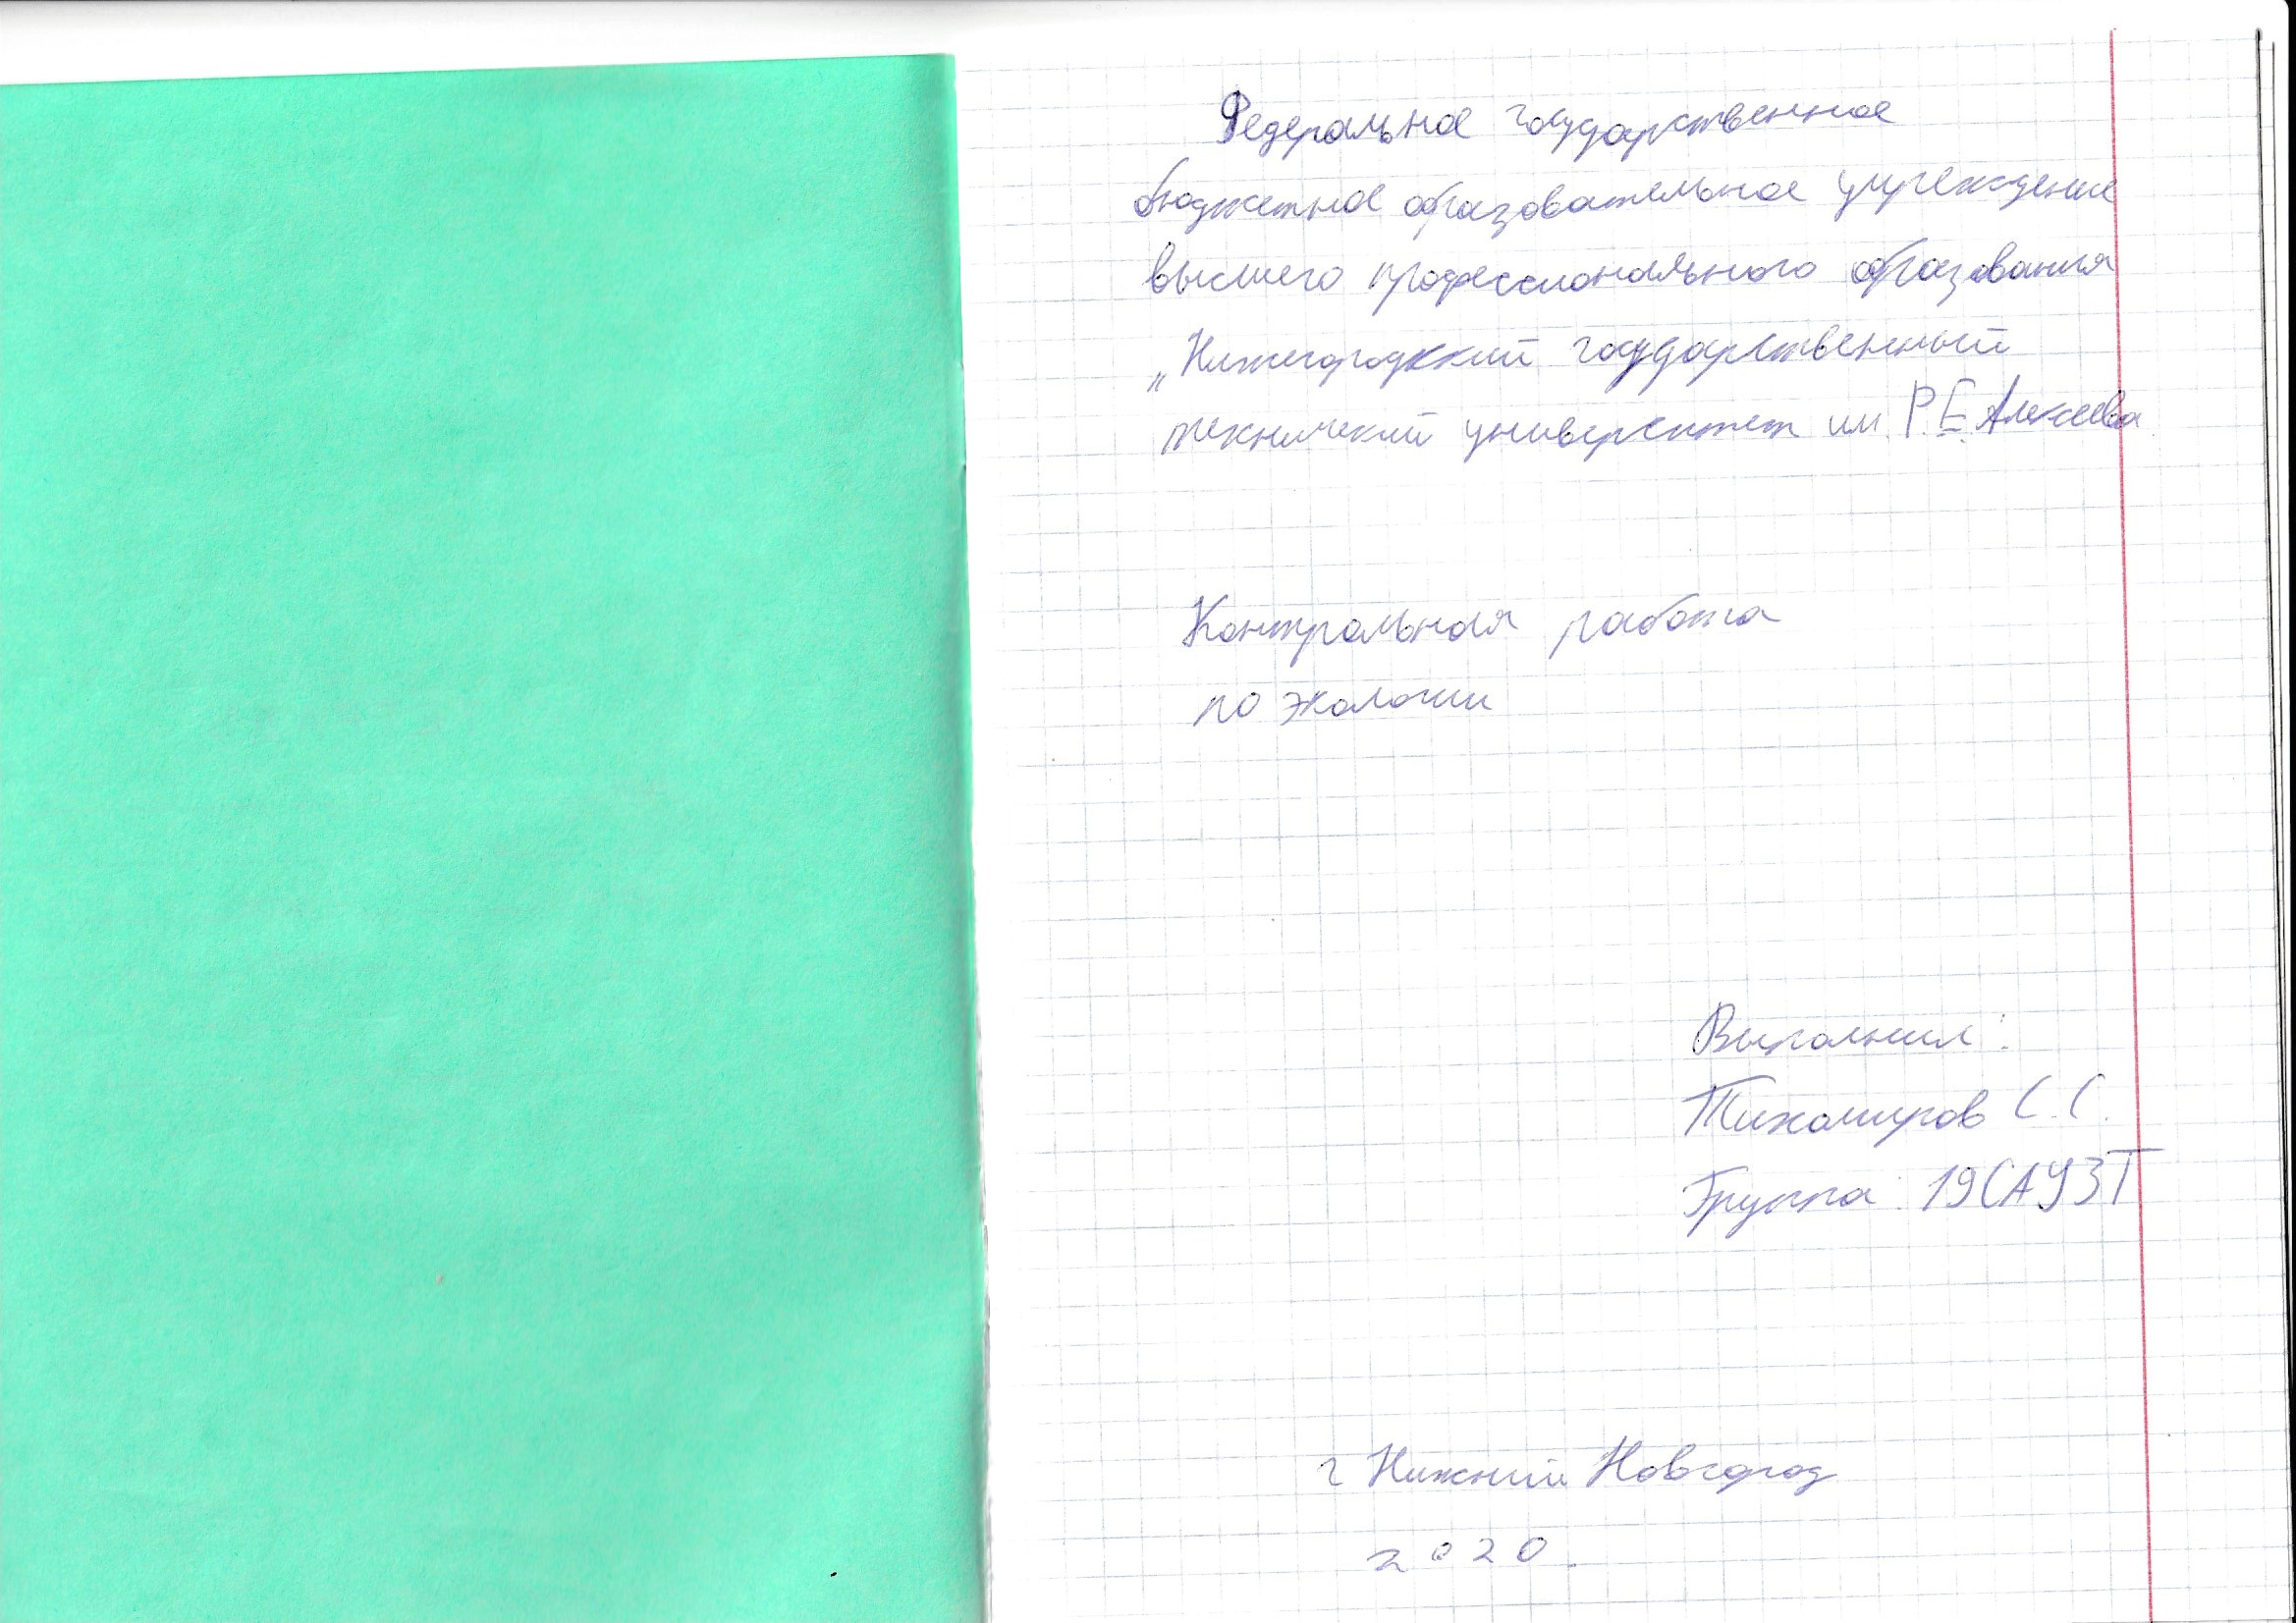 Федеральное государственное
бюджетное образовательное учреждение
высшего профессионального образования
„Нижегородский государственный
технический университет им. Р.Е. Алексеева
Контрольная работа
по экологии
Выполнил:
Тихомиров С.С.
Группа: 19САУЗТ
г Нижний Новгород
2020.